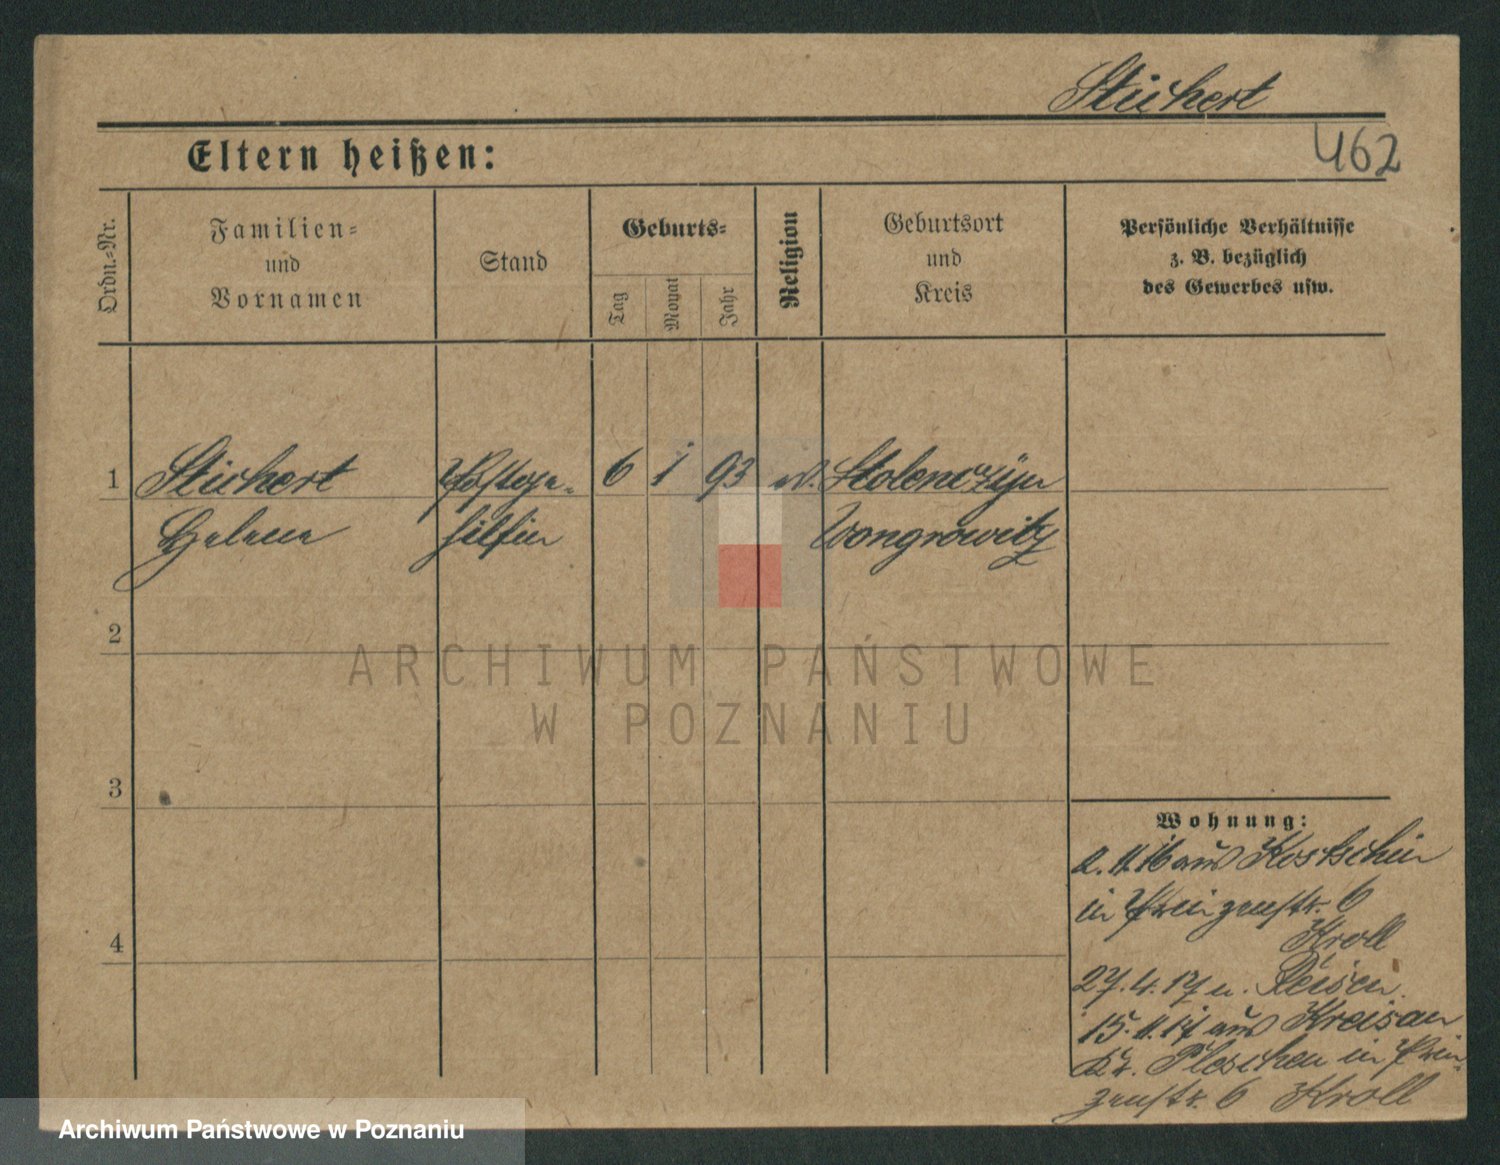 Stichert
462
Eltern heißen:
Ordn.-Nr.
Familien-
und
Vornamen
Stand
Geburts-
Tag
Monat
Jahr
Religion
Geburtsort
und
Kreis
Persönliche Verhältnisse
z. B. bezüglich
des Gewerbes usw.
1 Stichert Postge- 6 1 93 ev. Stolenczyn
Helene hilfin Wongrowitz
2
3
4
Wohnung:
2. 11. 16 aus Kostschin
in Prinzenstr. 6
Kroll
27. 4. 17 n. Reisen.
15. 11. 17 aus Kreisau
Kr. Pleschen in Prin-
zenstr. 6 Kroll
ARCHIWUM PAŃSTWOWE
W POZNANIU
Archiwum Państwowe w Poznaniu